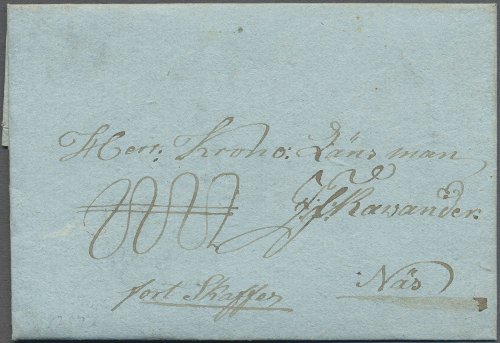 Herr: Krono: Länsman
J: f: Kasander
Näs
fort Skaffas